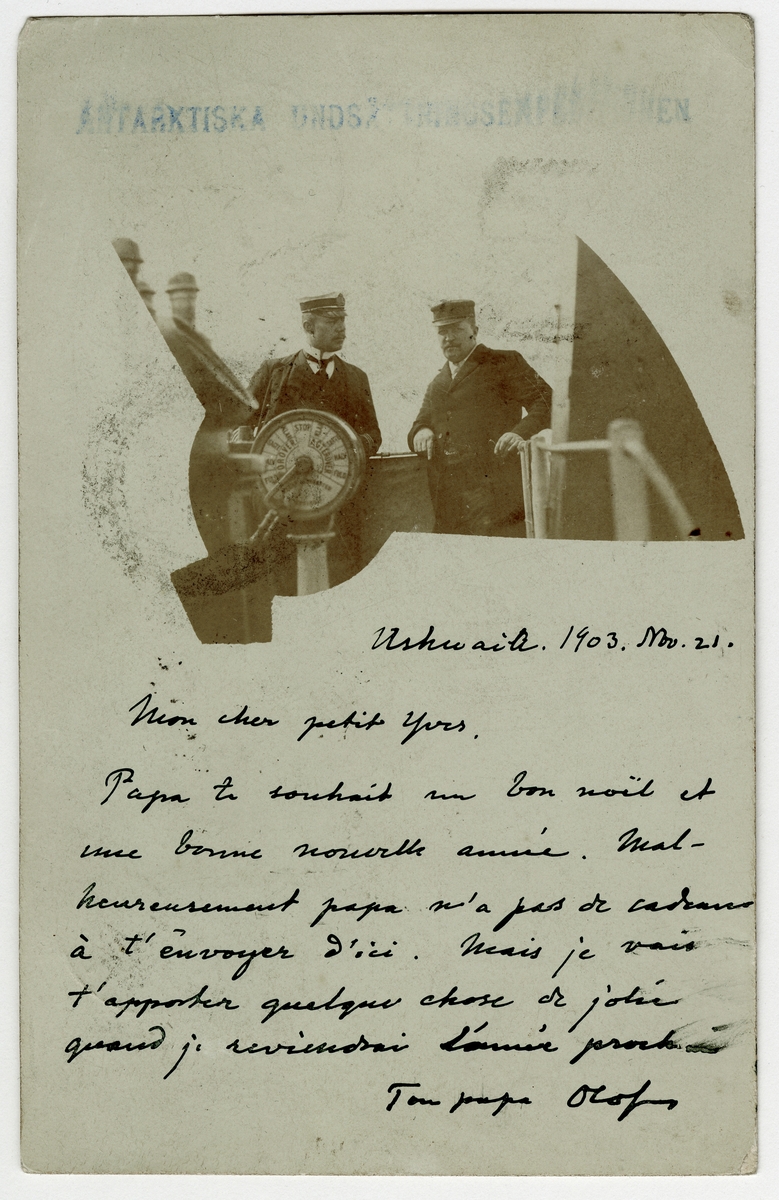 ANTARKTISKA UNDSÄTTNINGSEXPEDITIONEN
STOP
Ushuaia. 1903. Nov. 21.
Mon cher petit Yves,
Papa te souhait un bon noël et
une bonne nouvelle année. Mal-
heureusement papa n'a pas de cadeaux
à t'envoyer d'ici. Mais je vais
t'apporter quelque chose de jolie
quand je reviendrai l'année proch
Ton papa Olof